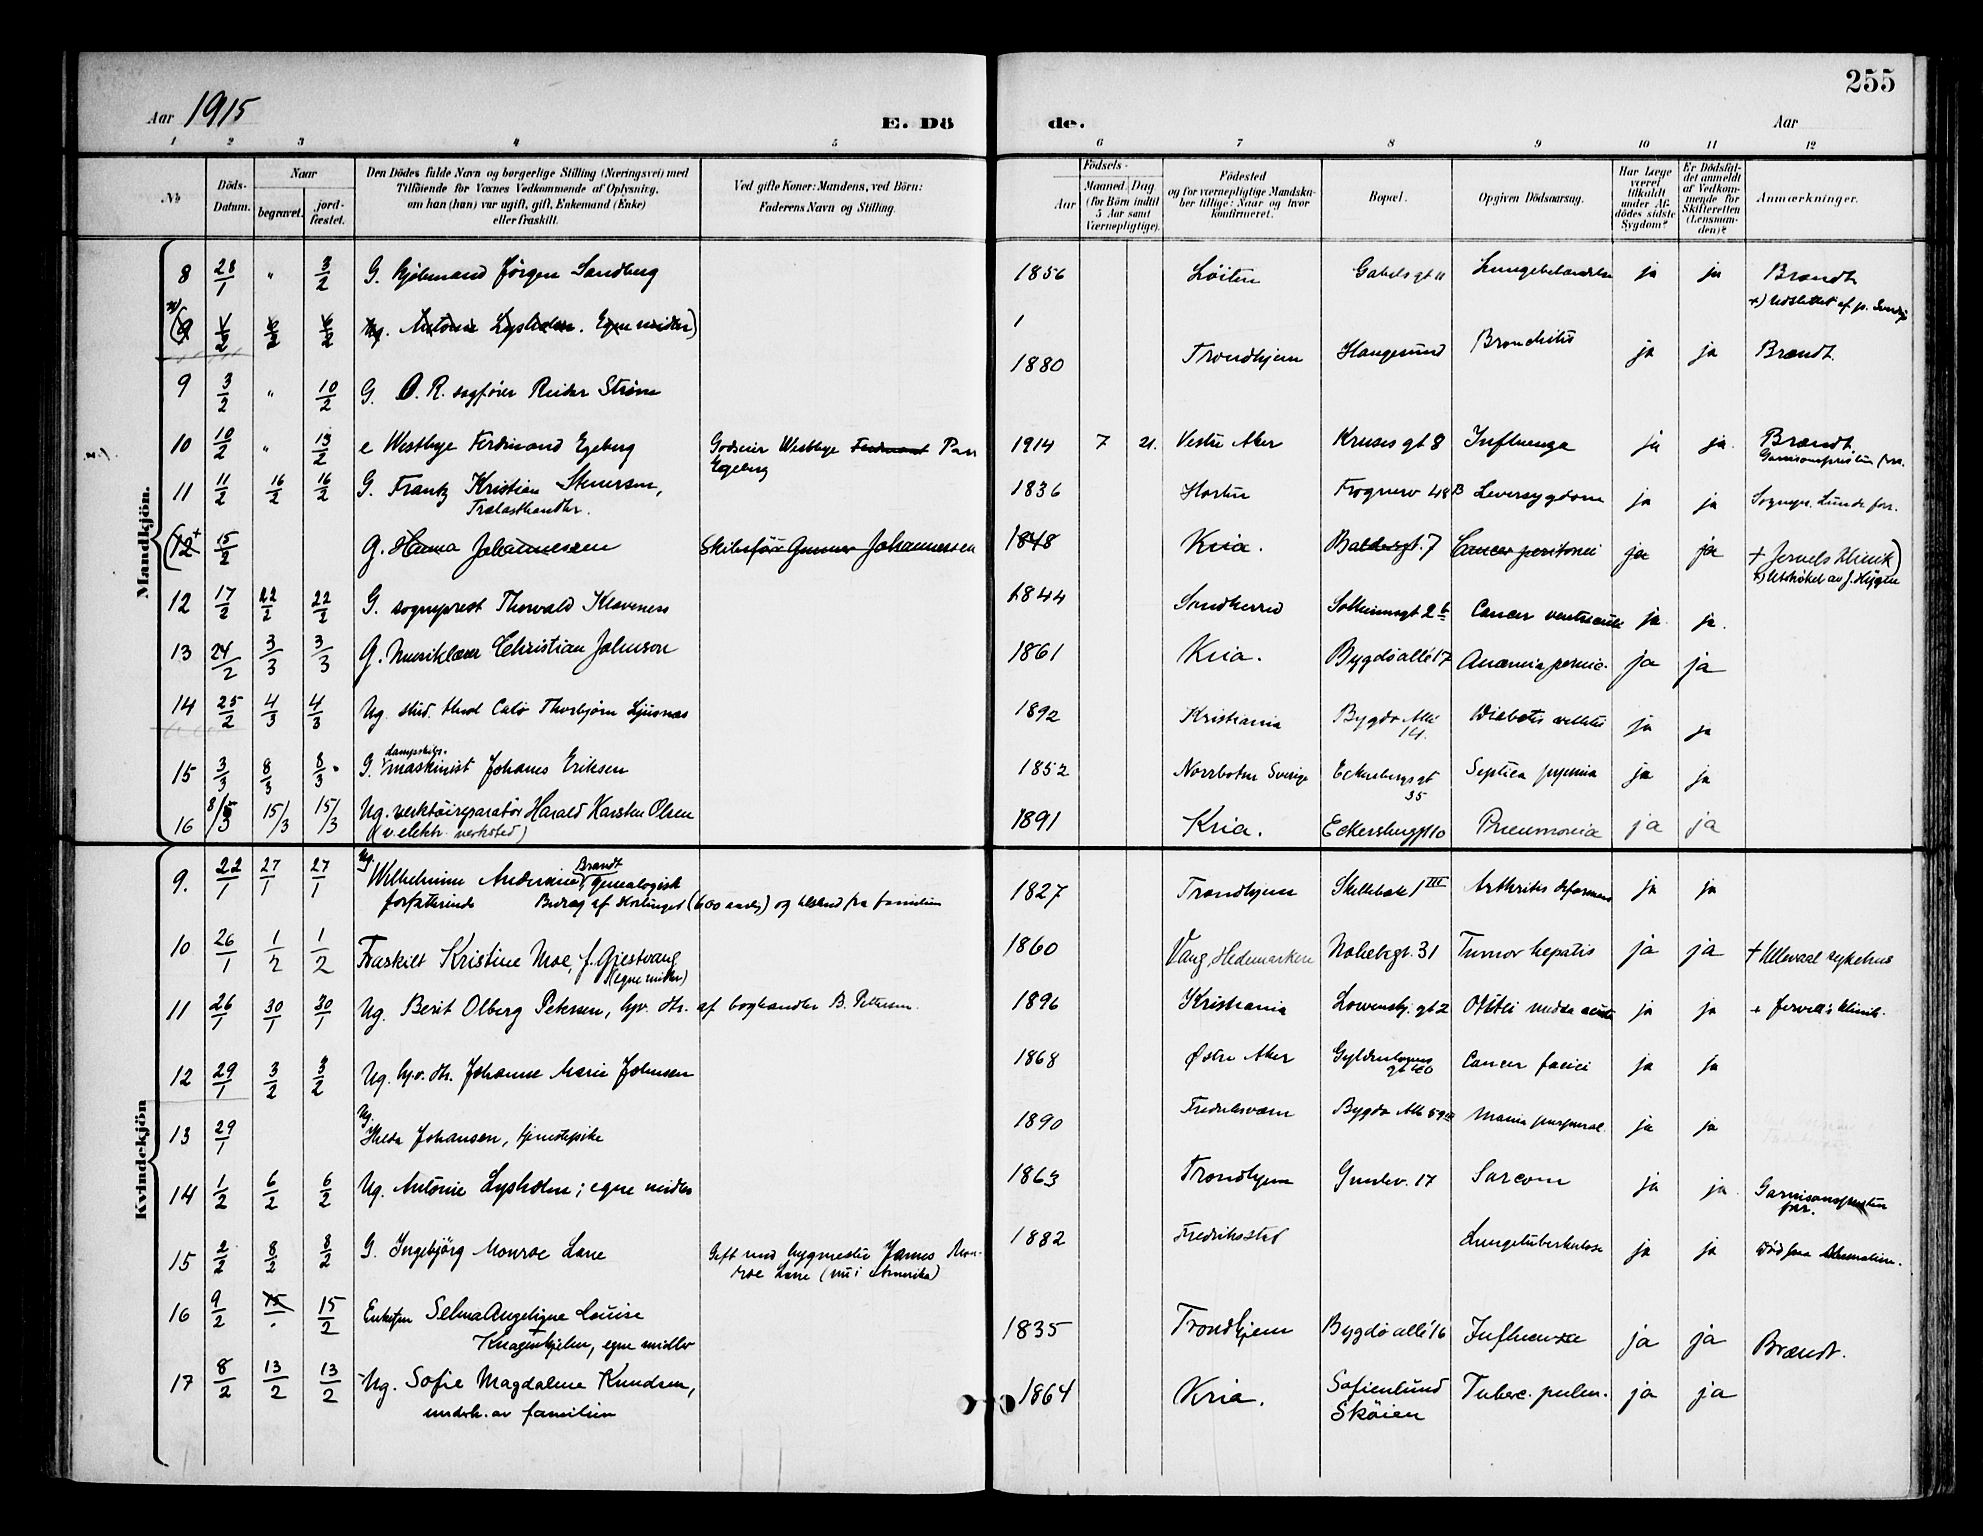 255
Aar 1915 E. Dö de. Aar
1 2 3 4 5 6 7 8 9 10 11 12
No
Döds-Datum.
Naar
begravet.
jord-fæstet.
Den Dödes fulde Navn og borgerlige Stilling (Næringsvei) med
Tilföiende for Voxnes Vedkommende af Oplysning,
om han (hun) var ugift, gift, Enkemand (Enke)
eller fraskilt.
Ved gifte Koner: Mandens, ved Börn:
Faderens Navn og Stilling.
Födsels-
Aar
Maaned Dag
(for Börn indtil
5 Aar samt
Værnepligtige).
Födested
og for værnepligtige Mandska-
ber tillige: Naar og hvor
konfirmeret.
Bopæl.
Opgiven Dödsaarsag.
Har Læge
været
tilkaldt
under Af-
dödes sidste
Sygdom?
Er Dödsfal-
det anmeldt
af Vedkom-
mende for
Skifteretten
(Lensman-
den)?
Anmærkninger.
Mandkjön.
8 28/1 " 3/2 G. Kjöbmand Jörgen Sandberg 1856 Löiten Gabelsgt 11 ja ja Brandt
(9 1/2 6/2 6/2 Ug. Antonie Lysholm. Egne midler)
9 3/2 " 10/2 G. O. R. sagförer Reidar Ström 1880 Trondhjem Haugesund Bronchitis ja ja Brandt.
10 10/2 " 13/2 e Westbye Ferdinand Egeberg Godseier Westbye Ferdinant Parr Egeberg 1914 7 21. Vestre Aker Kruses gt 8 Influenza ja ja Brandt.
11 11/2 16/2 16/2 G. Frantz Kristian Stenersen, 1836 Horten Frognerv 48 B Leversygdom ja ja Sognepr. Lunde forr.
Trælasthandler.
(12+ 15/2 G. Hanna Johannessen Skibsförer Gunnar Johannessen 1848 Kria. Baldersgt. 7 Cancer peritonei ja ja + Jervels Klinik)
12 17/2 22/2 22/2 G. sogneprest Thorvald Klaveness 1844 Sandherred Solheimsgt 2b Cancer ventriculi ja ja.
13 24/2 3/3 3/3 G. Musiklærer Christian Johnson 1861 Kria. Bygdö allé 17 Anæmia pernic. ja ja
14 25/2 4/3 4/3 Ug. stud. Thorbjörn Ljusnæs 1892 Kristiania Bygdö Allé 14. ja ja
15 3/3 8/3 8/3 G. dampskibs-maskinist Johanes Eriksen 1852 Norrbotten Sverige Eckersbergsgt 35 Septica pyemia ja ja
16 8/3 15/3 15/3 Ug. verktöireparatör Harald Karsten Olsen 1891 Kria. Eckersbergsgt 10 Pneumonia ja ja
(v. elektr. verksted)
Kvindekjön
9. 22/1 27/1 27/1 Ug. Wilhelmine Andersine Brandt, genealogisk 1827 Trondhjem Skillebæk 1 III Arthritis deformans ja ja
forfatterinde Bidrag af Stortinget (600 aarlig) og tilskud fra familien
10 26/1 1/2 1/2 Fraskilt Kristine Moe, f. Gjestvang 1860 Vang, Hedemarken Nobelsgt. 31 Tumor hepatis ja ja + Ullevaal sykehus
(egne midler)
11 26/1 30/1 30/1 Ug. Berit Olberg Petersen, hjv. dtr. af boghandler B. Pettersen. 1896 Kristiania Lövenskj. gt 2 Otitis media acuta ja ja + Jervell's klinik.
12 29/1 3/2 3/2 Ug. hjv. dtr. Johanne Marie Johnsen 1868 Östre Aker Gyldenløvesgt Cancer faciei ja ja
13 29/1 Ug. Hilda Johansen, tjenestepike 1890 Fredriksværn Bygdö Allé 59 III Mania puerperal. ja ja
14 1/2 6/2 6/2 Ug. Antonie Lysholm; egne midler 1863 Trondhjem Gimlev. 17 Sarcom ja ja Garnisonspresten
forr.
15 2/2 8/2 8/2 G. Ingebjörg Monroe Lane Gift med bygmester James Mon-roe Lane (nu i Amerika) 1882 Fredriksstad Lungetuberkulose ja ja
16 9/2 15 15/2 Enkefru Selma Angelique Louise 1835 Trondhjem Bygdö allé 16 Influenza ja ja Brandt.
Knagenhjelm, egne midler
17 8/2 13/2 13/2 Ug. Sofie Magdalene Knudsen, 1864 Kria. Sofienlund Skøien Tuberc. pulm. ja ja
underh. av familien